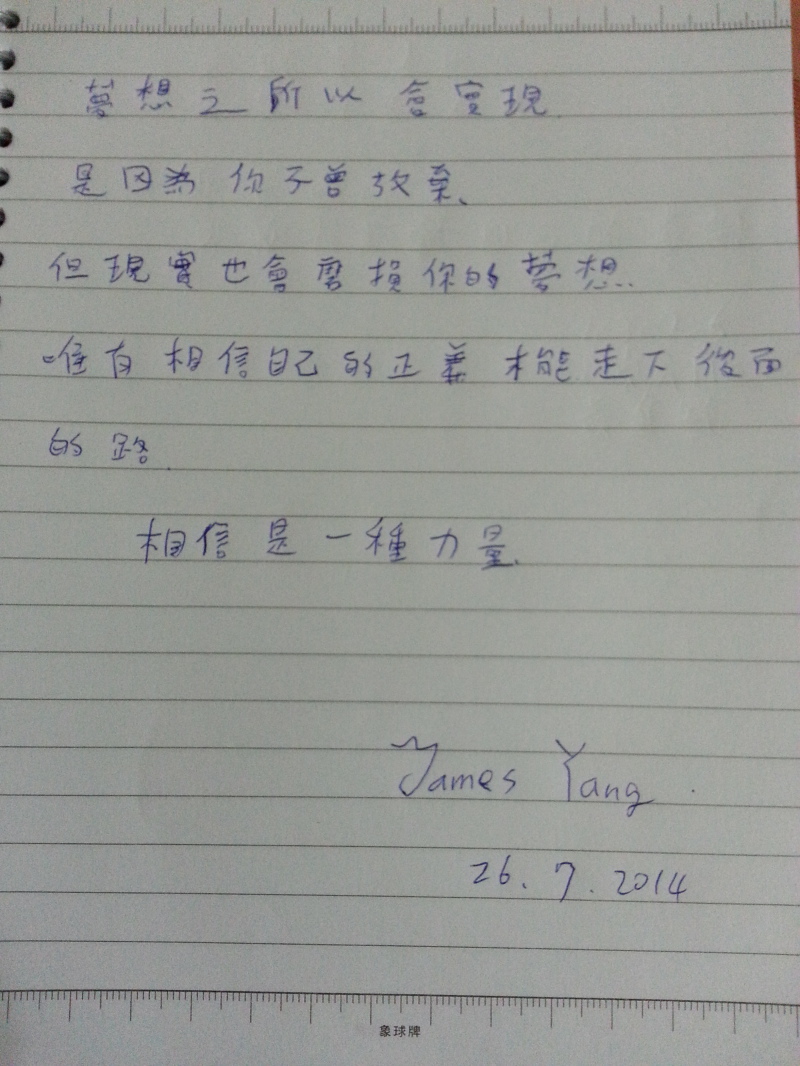 夢想之所以會實現
是因為你不曾放棄、
但現實也會磨損你的夢想.
唯有相信自己的正義才能走下後面
的路.
相信是一種力量.
James Yang.
26.7.2014
象球牌